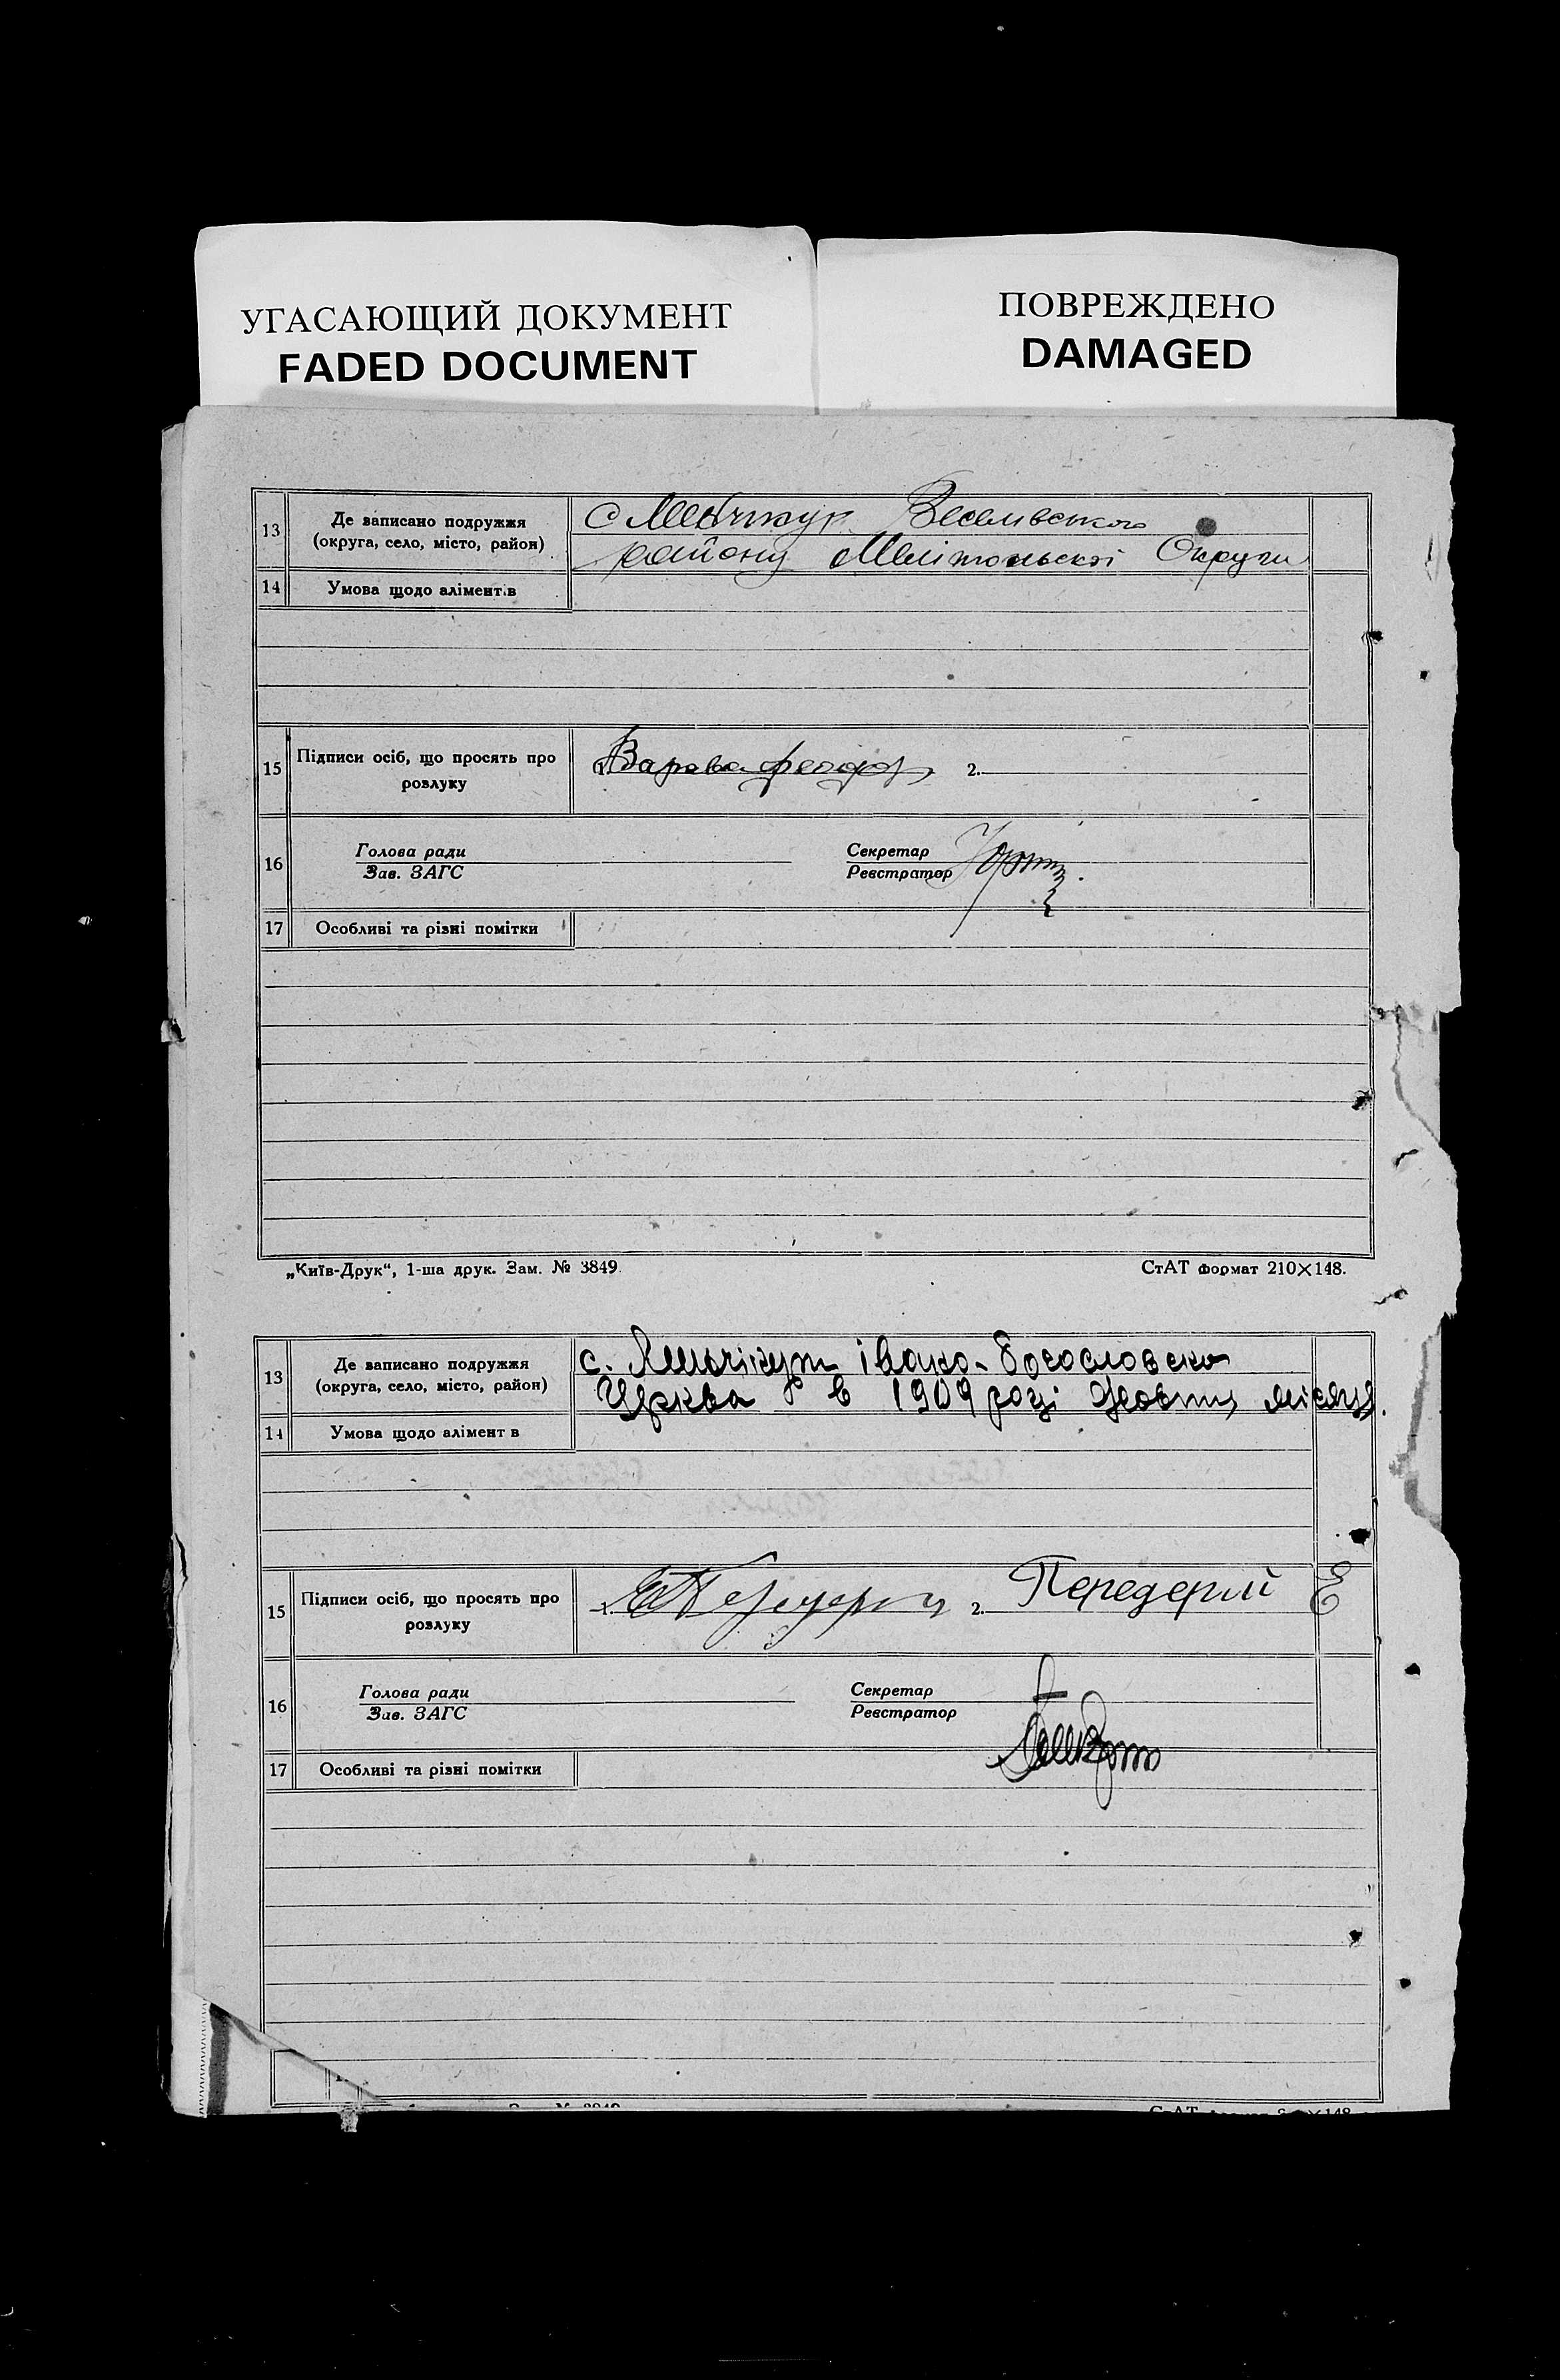 УГАСАЮЩИЙ ДОКУМЕНТ
FADED DOCUMENT
ПОВРЕЖДЕНО
DAMAGED
13
Де записано подружжя
(округа, село, місто, район)
с Менчикур Веселивського
району Мелітопольскої Округи
14
Умова щодо аліментів
15
Підписи осіб, що просять про
розлуку
Варава Феодор 2.
16
Голова ради
Зав. ЗАГС
Секретар
Реєстратор
17
Особливі та різні помітки
„Київ-Друк“, 1-ша друк. Зам. № 3849.
СтАТ формат 210×148.
13
Де записано подружжя
(округа, село, місто, район)
с. івано-богословска
Церква в 1909 році місяця.
14
Умова щодо алімент в
15
Підписи осіб, що просять про
розлуку
1. 2. Передерій Е
16
Голова ради
Зав. ЗАГС
Секретар
Реєстратор
17
Особливі та різні помітки